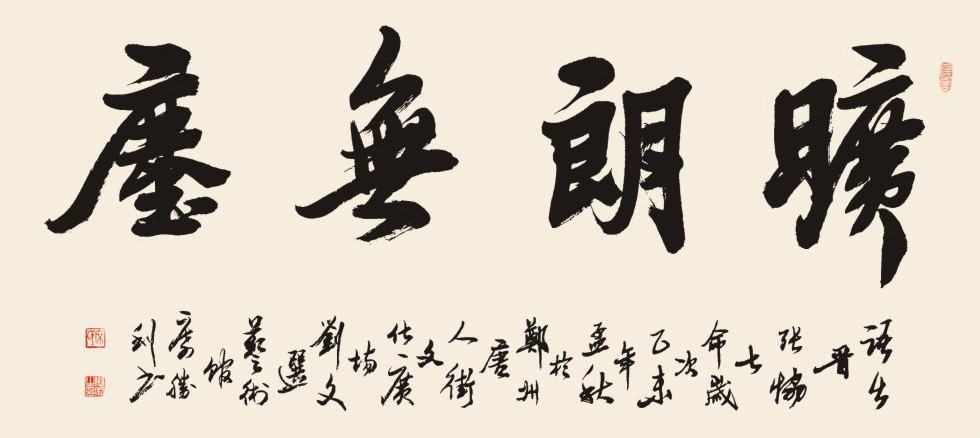 曠朗無塵
語出晉張協七命歲次乙未年孟秋於鄭州唐人街文化廣場劉文選藝術館勝利書